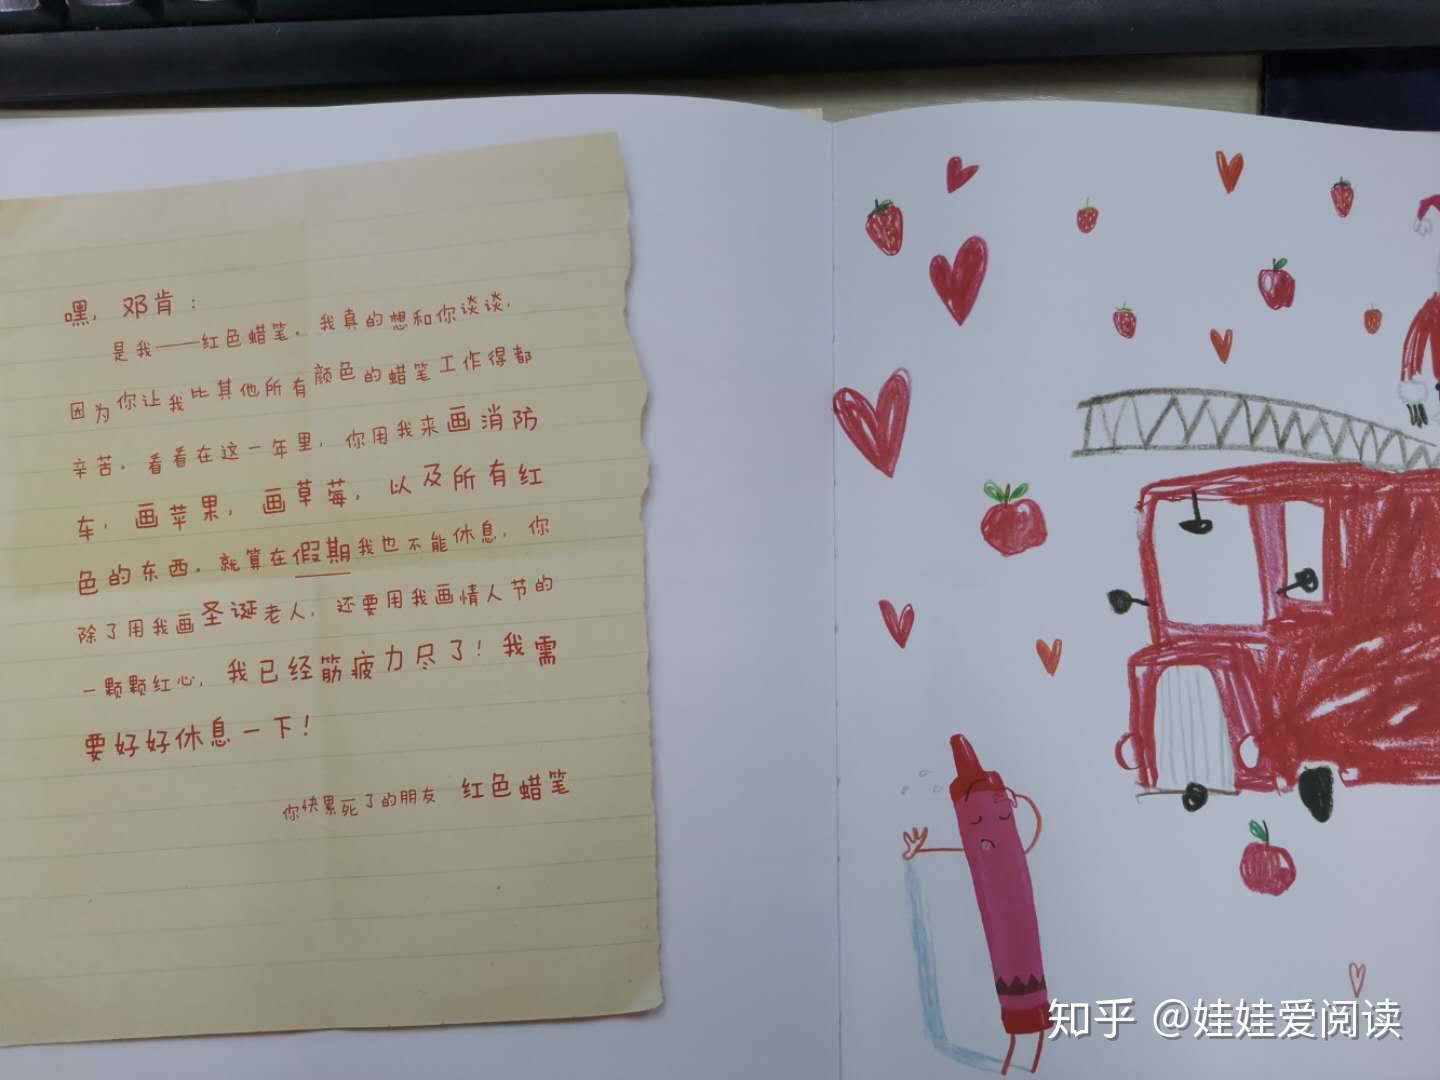 嘿，邓肯：
是我——红色蜡笔。我真的想和你谈谈，
因为你让我比其他所有颜色的蜡笔工作得都
辛苦。看看在这一年里，你用我来画消防
车，画苹果，画草莓，以及所有红
色的东西。就算在假期我也不能休息，你
除了用我画圣诞老人，还要用我画情人节的
一颗颗红心，我已经筋疲力尽了！我需
要好好休息一下！
你快累死了的朋友 红色蜡笔
知乎 @娃娃爱阅读